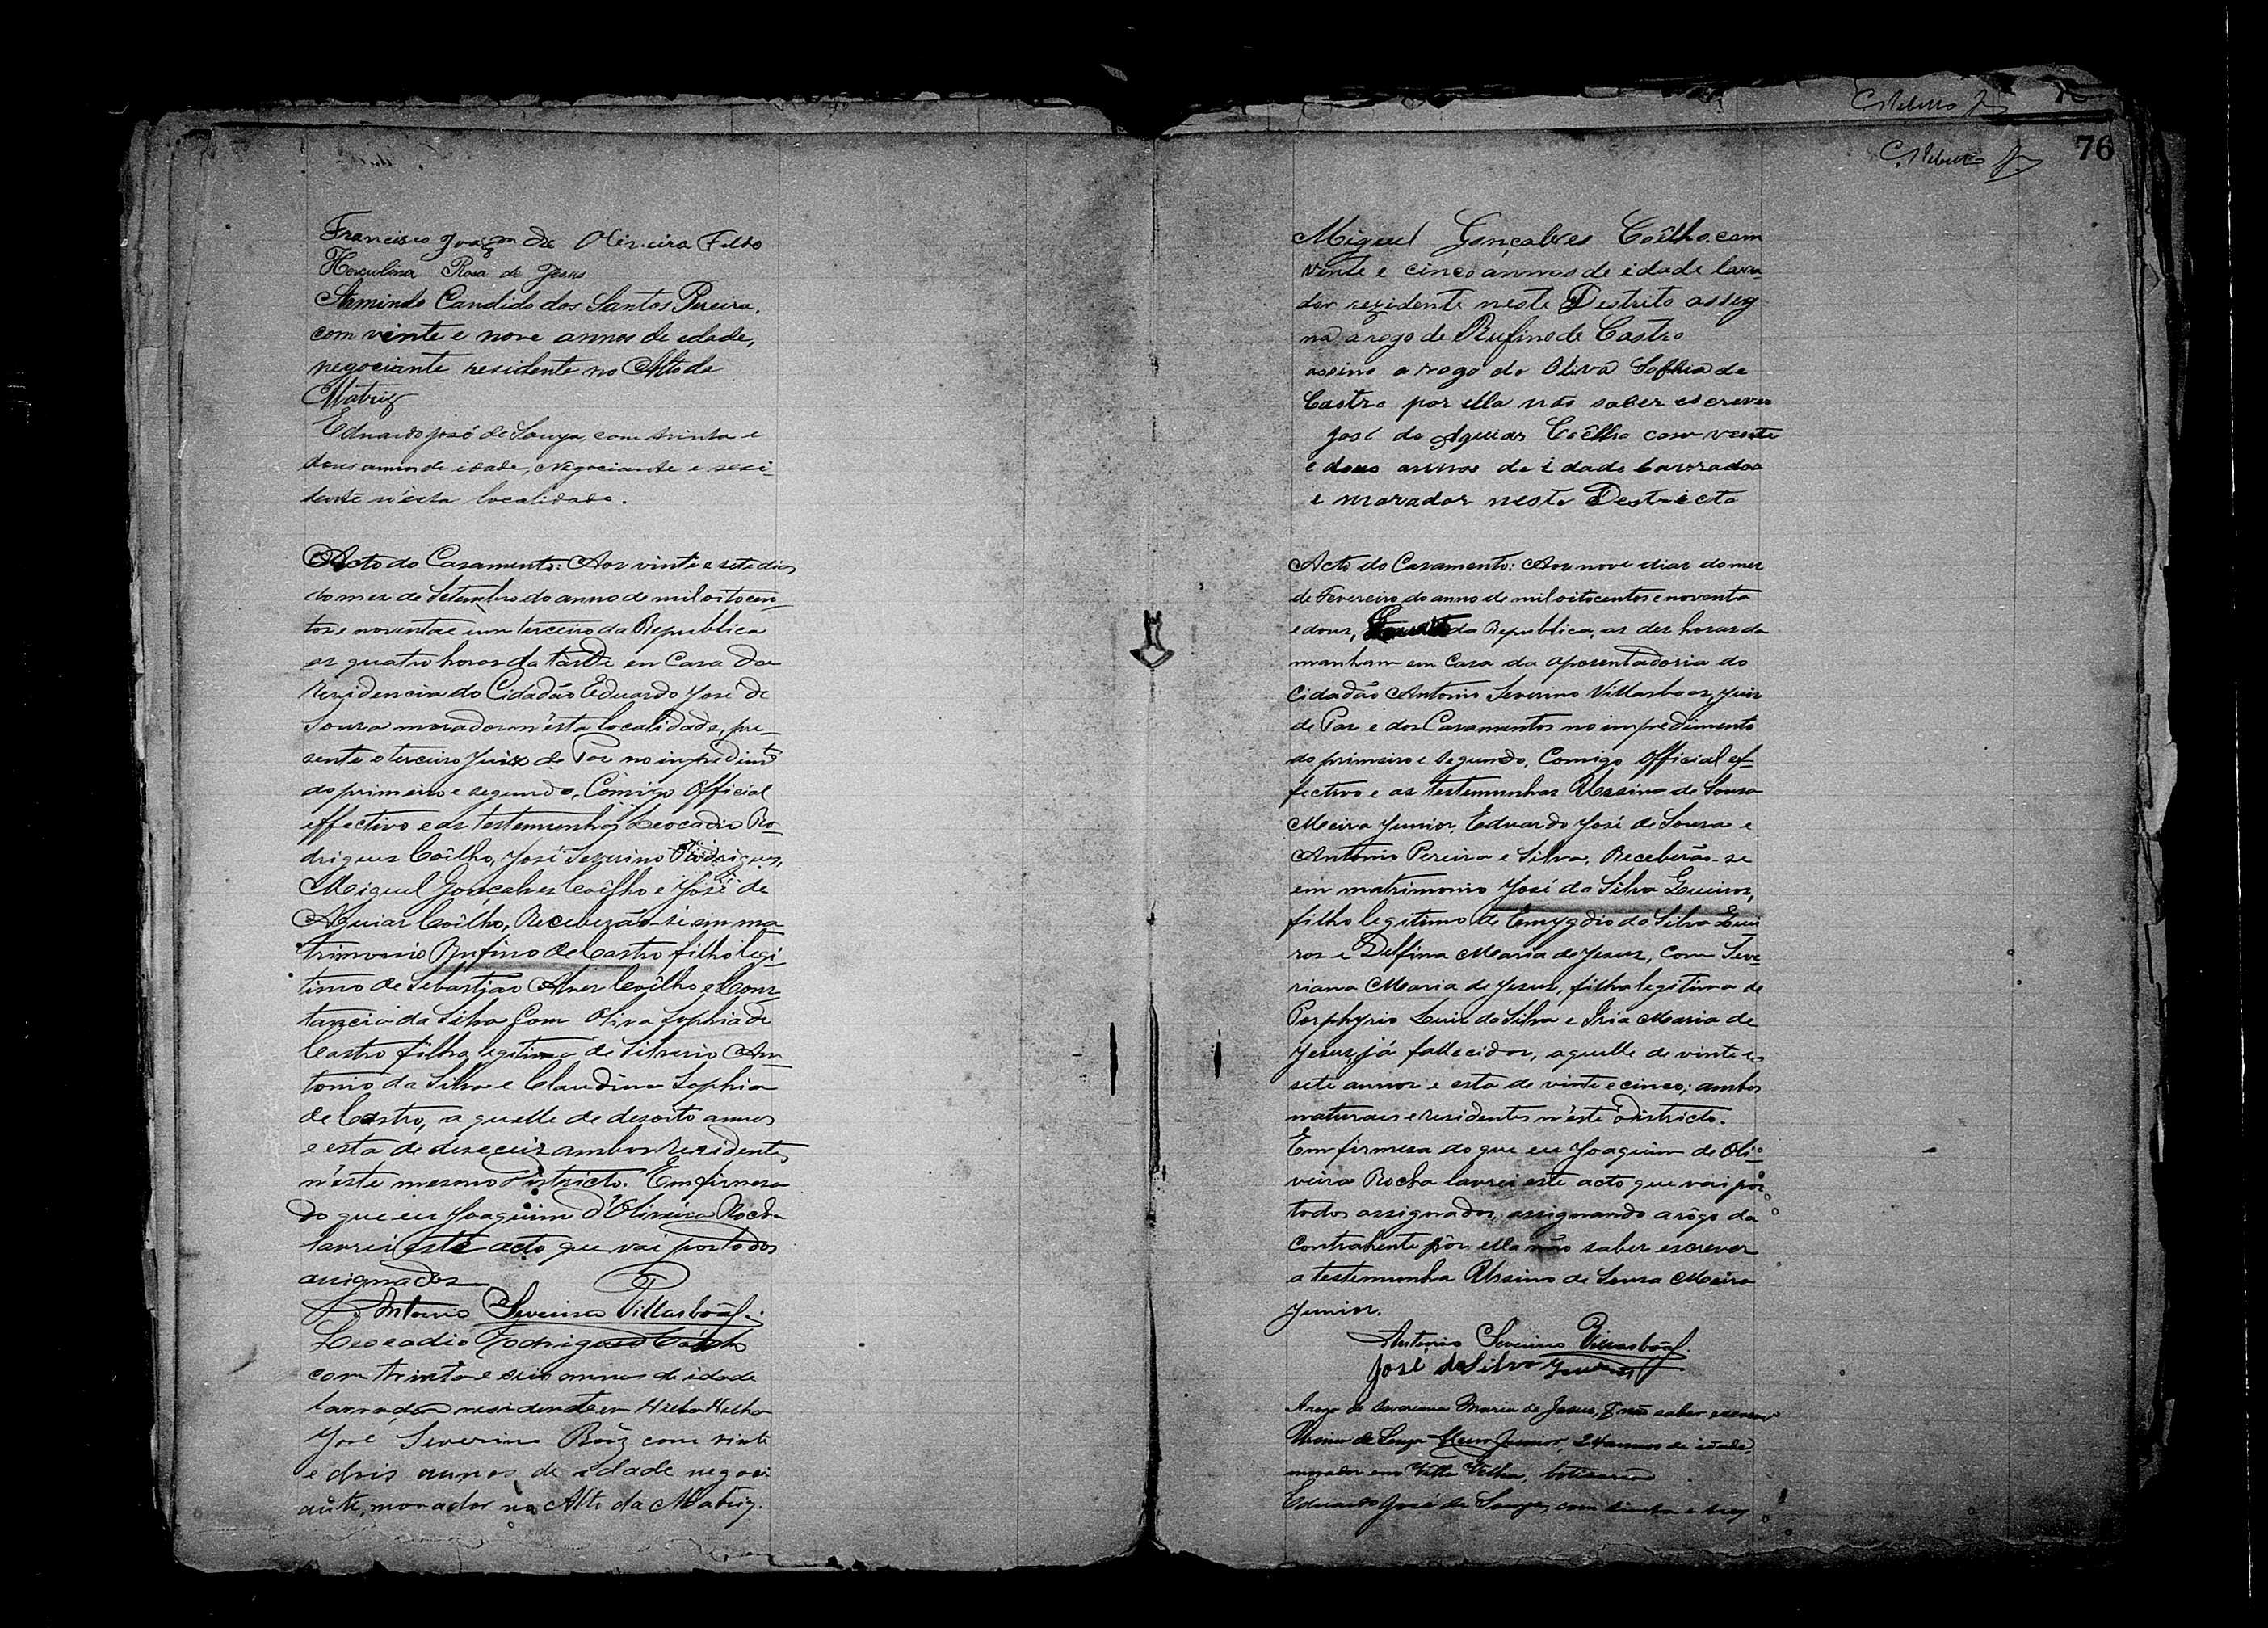 Francisco Joaqm de Oliveira Filho
Herculina Rosa de Jesus
Candido dos Santos Pereira,
com vinte e nove annos de edade,
negociante residente no Alto da
Matriz
Eduardo José de Souza, com trinta e
dous annos de idade, negociante e resi-
dente n'esta localidade.
Acto do Casamento: Aos vinte e sete dias
do mez de Setembro do anno de mil oitocen-
tos e noventa e um terceiro da Republica
as quatro horas da tarde em Casa da
Residencia do Cidadão Eduardo José de
Souza morador n'esta localidade, pre-
sente o terceiro Juiz de Paz no impedimto
do primeiro e segundo, Comigo Official
effectivo e as testemunhas Leocadio Ro-
drigues Coêlho, José Severino Rodrigues,
Miguel Gonçalves Coêlho e José de
Aguiar Coêlho, Receberão-se em ma
trimonio Rufino de Castro filho legi-
timo de Sebastião Alves Coêlho e Cons-
tancia da Silva Com Oliva Sophia de
Castro filha legitima de Silverio An
tonio da Silva e Claudina Sophia
de Castro, aquelle de desoito annos
e esta de deseceis ambos residentes
n'este mesmo districto. Em firmesa
do que eu Joaquim d'Oliveira Rocha
lavrei este acto que vai por todos
assignados
Antonio Severino Villasbôas.
Leocadio Rodrigues Coêlho
com trinta e seis annos de idade
lavrador residente em
José Severino Roiz com vinte
e dois annos de idade negoci
ante, morador no Alto da Matriz.
C. Rebello Jr
C. Rebello Jr 76
Miguel Gonçalves Coêlho com
vinte e cinco annos de idade lavra
dor rezidente neste Destrito asseg
na arogo de Rufino de Castro
assino a rogo de Oliva Sofhia de
Castro por ella não saber escrever
José de Aguiar Coêlho com vente
e dous annos de idade lavrador
e morador neste Destricto
Acto do Casamento: Aos nove dias do mez
de Fevereiro do anno de mil oitocentos e noventa
e dous, da Republica, as des horas da
manham em Casa da aposentadoria do
Cidadão Antonio Severino Villasboas, Juiz
de Paz e dos Casamentos no impedimento
do primeiro e segundo, Comigo Official ef-
fectivo e as testemunhas Ursino de Sousa
Meira Junior, Eduardo José de Sousa e
Antonio Pereira e Silva, Receberão-se
em matrimonio José da Silva Queiroz,
filho legitimo de Emygdio da Silva Quei
roz e Delfina Maria de Jesus, Com Seve-
riana Maria de Jesus, filha legitima de
Porphyrio Luiz da Silva e Iria Maria de
Jesus, já fallecidos, aquelle de vinte e
sete annos e esta de vinte e cinco; ambos
naturaes e residentes n'este districto.
Em firmesa do que eu Joaquim de Oli-
veira Rocha lavrei este acto que vai por
todos assignados, assignando arôgo da
Contrahente por ella não saber escrever
a testemunha Ursino de Sousa Meira
Junior.
Antonio Severino Villasbôas.
José da Silva Queiroz
Arogo de Severiana Maria de Jesus, p não saber escrever
Ursino de Souza Meira Junior, 24 annos de idade,
morador em Villa Velha, boticario
Eduardo José de Souza, com trinta e trez